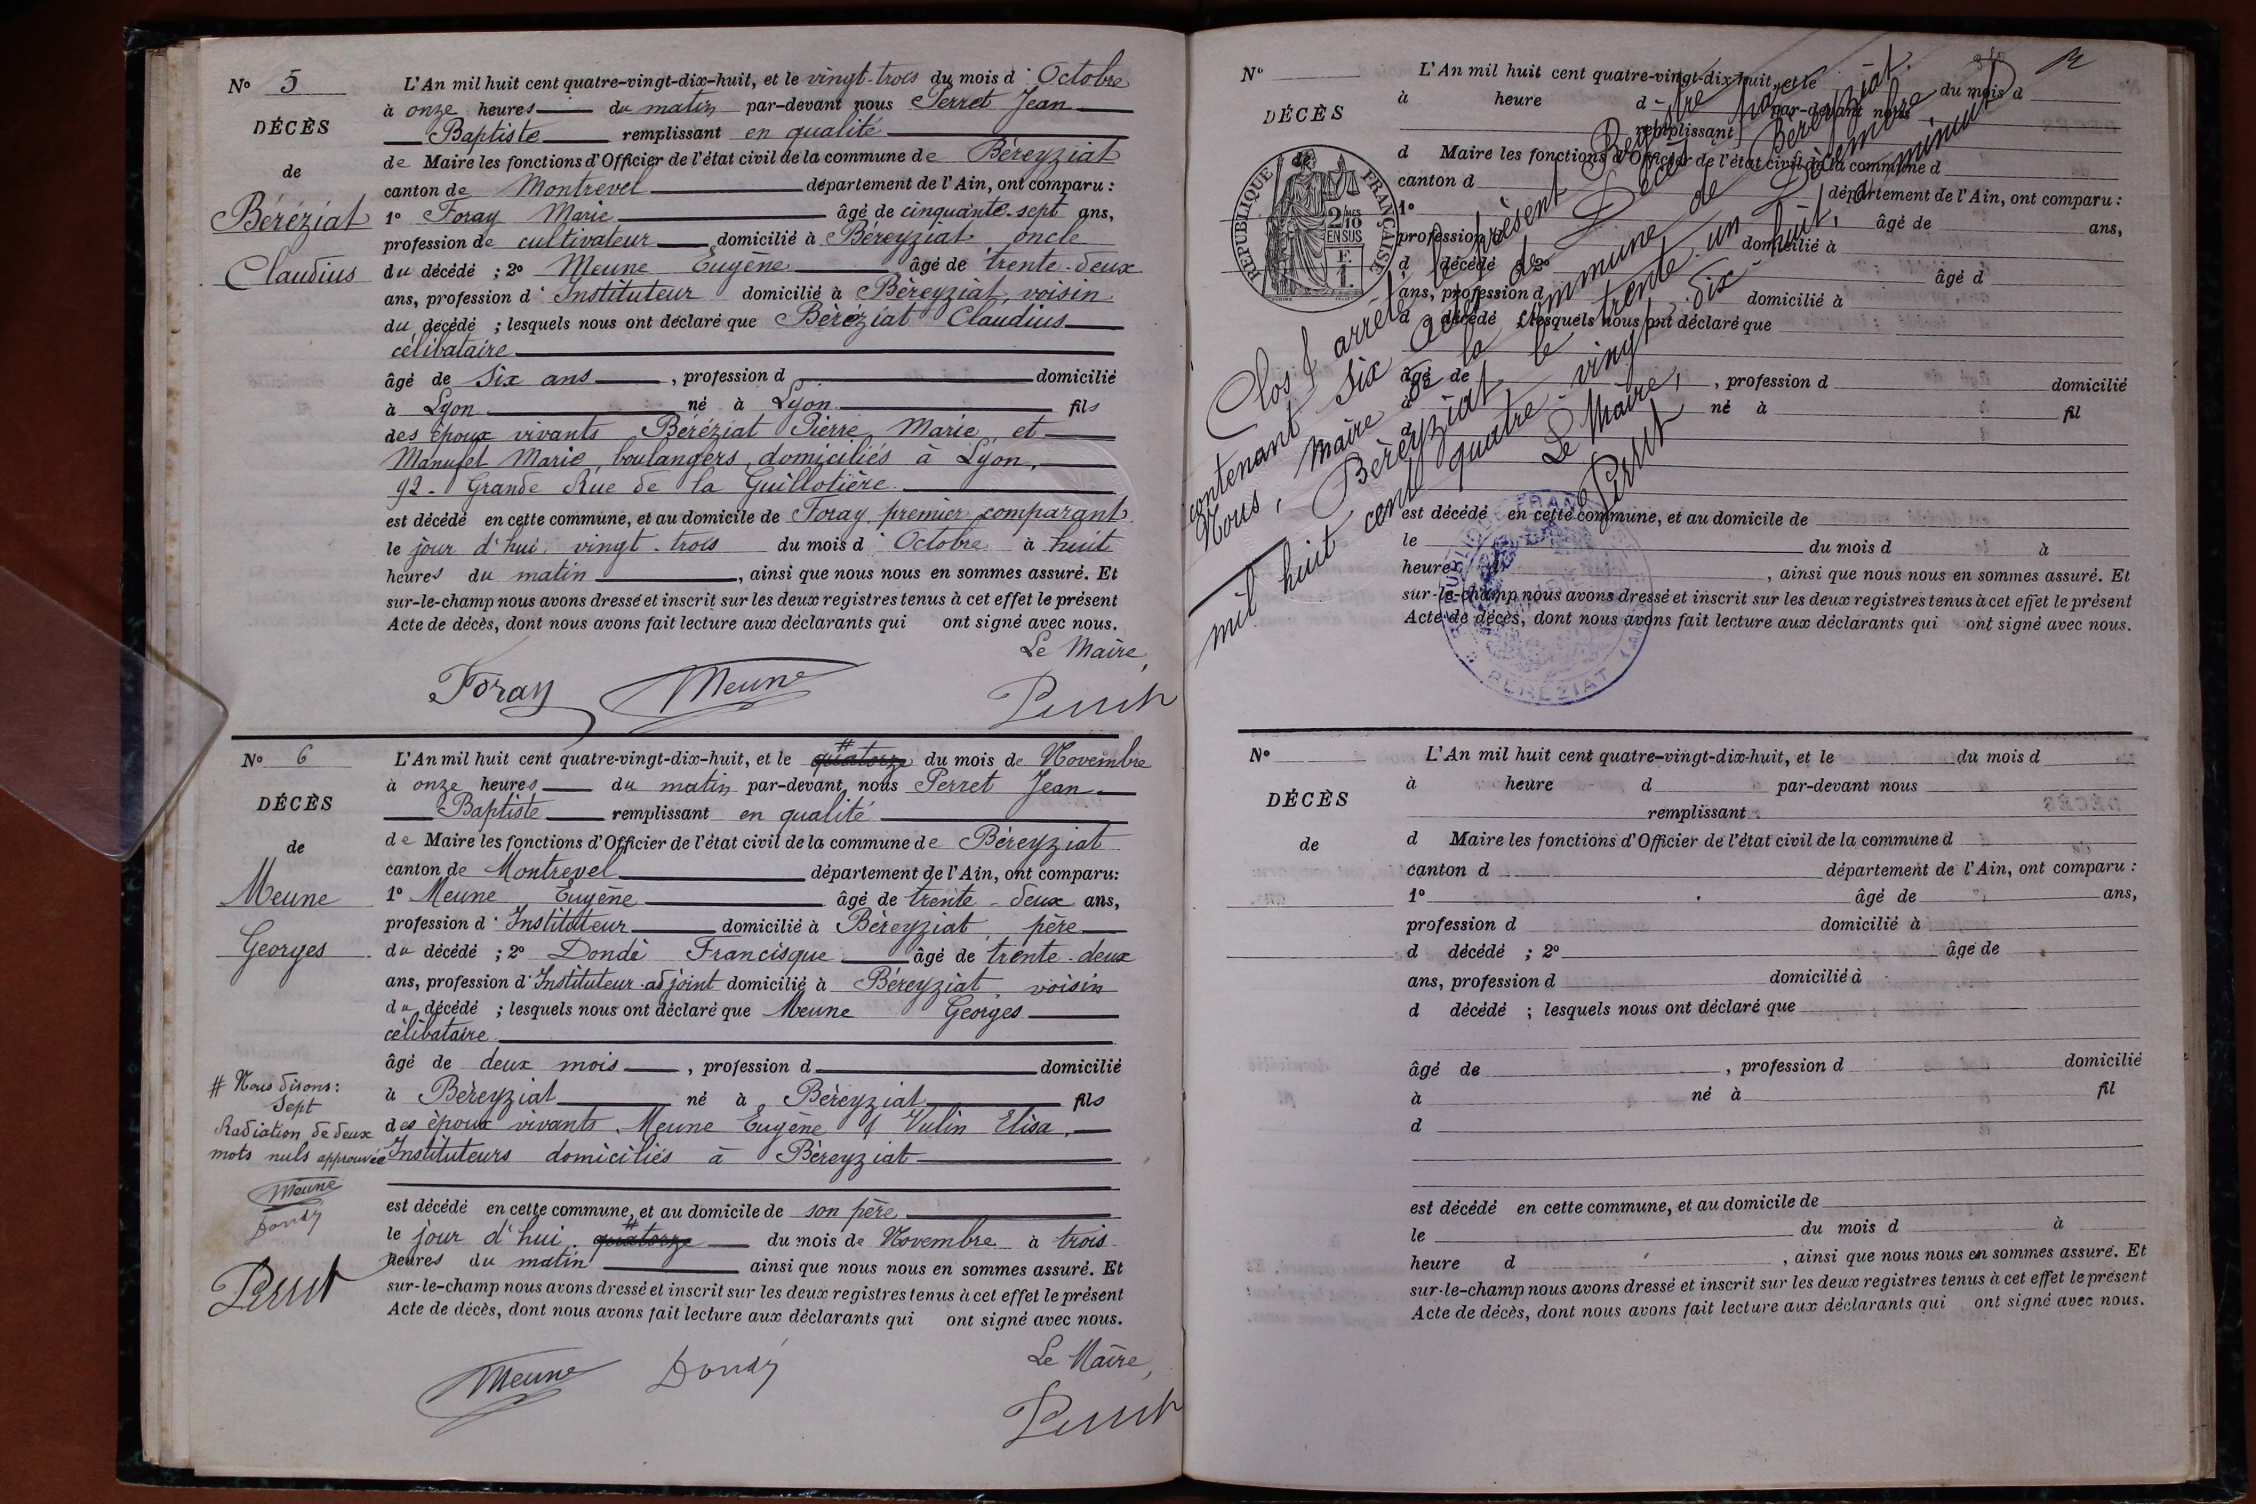 N° 5
DÉCÈS
de
Béréziat
Claudius
L'An mil huit cent quatre-vingt-dix-huit, et le vingt-trois du mois d'Octobre
à onze heures du matin par-devant nous Perret Jean
Baptiste remplissant en qualité
de Maire les fonctions d'Officier de l'état civil de la commune de Béreyziat
canton de Montrevel département de l'Ain, ont comparu :
1° Foray Marie âgé de cinquante-sept ans,
profession de cultivateur domicilié à Béreyziat, oncle
du décédé ; 2° Meune Eugène âgé de trente-deux
ans, profession d'Instituteur domicilié à Béreyziat, voisin
du décédé ; lesquels nous ont déclaré que Béréziat Claudius
célibataire
âgé de six ans , profession d domicilié
à Lyon né à Lyon fils
des époux vivants Béréziat Pierre Marie et
Marie, boulangers, domiciliés à Lyon,
92 - Grande Rue de la Guillotière
est décédé en cette commune, et au domicile de Foray, premier comparant
le jour d'hui vingt-trois du mois d'Octobre à huit
heures du matin , ainsi que nous nous en sommes assuré. Et
sur-le-champ nous avons dressé et inscrit sur les deux registres tenus à cet effet le présent
Acte de décès, dont nous avons fait lecture aux déclarants qui ont signé avec nous.
Le Maire,
Foray Meune Perret
N° 6
DÉCÈS
de
Meune
Georges
L'An mil huit cent quatre-vingt-dix-huit, et le # quatorze du mois de Novembre
à onze heures du matin par-devant nous Perret Jean
Baptiste remplissant en qualité
de Maire les fonctions d'Officier de l'état civil de la commune de Béreyziat
canton de Montrevel département de l'Ain, ont comparu:
1° Meune Eugène âgé de trente-deux ans,
profession d'Instituteur domicilié à Béreyziat, père
du décédé ; 2° Dondé Francisque âgé de trente-deux
ans, profession d'Instituteur-adjoint domicilié à Béreyziat voisin
du décédé ; lesquels nous ont déclaré que Meune Georges
célibataire
âgé de deux mois , profession d domicilié
à Béreyziat né à Béreyziat fils
des époux vivants, Meune Eugène & Vulin Elisa,
Instituteurs domiciliés à Béreyziat
est décédé en cette commune, et au domicile de son père
le jour d'hui # quatorze du mois de Novembre à trois
heures du matin ainsi que nous nous en sommes assuré. Et
sur-le-champ nous avons dressé et inscrit sur les deux registres tenus à cet effet le présent
Acte de décès, dont nous avons fait lecture aux déclarants qui ont signé avec nous.
# Nous disons:
Sept
Radiation de deux
mots nuls approuvée
Meune
Dondé
Perret
Le Maire,
Meune Dondé Perret
N°
DÉCÈS
de
RÉPUBLIQUE FRANÇAISE
2/10
EN SUS
L'An mil huit cent quatre-vingt-dix-huit, et le du mois d
à heure d par-devant nous
remplissant
d Maire les fonctions d'Officier de l'état civil de la commune d
canton d département de l'Ain, ont comparu :
1° âgé de ans,
profession d domicilié à
d décédé 2° âgé d
ans, profession d domicilié à
d décédé lesquels nous ont déclaré que
âgé de , profession d domicilié
à né à fil
d
est décédé en cette commune, et au domicile de
le du mois d à
heure d , ainsi que nous nous en sommes assuré. Et
sur-le-champ nous avons dressé et inscrit sur les deux registres tenus à cet effet le présent
Acte de décès, dont nous avons fait lecture aux déclarants qui ont signé avec nous.
Clos & arrêté le présent Registre
contenant six actes de Décès par
Nous, Maire de la commune de Béreyziat.
Béreyziat le trente-un Décembre
mil huit cent quatre-vingt-dix-huit, à minuit
Le Maire,
Perret
BÉRÉZIAT (AIN)
N°
DÉCÈS
de
L'An mil huit cent quatre-vingt-dix-huit, et le du mois d
à heure d par-devant nous
remplissant
d Maire les fonctions d'Officier de l'état civil de la commune d
canton d département de l'Ain, ont comparu :
1° âgé de ans,
profession d domicilié à
d décédé ; 2° âgé de
ans, profession d domicilié à
d décédé ; lesquels nous ont déclaré que
âgé de , profession d domicilié
à né à fil
d
est décédé en cette commune, et au domicile de
le du mois d à
heure d , ainsi que nous nous en sommes assuré. Et
sur-le-champ nous avons dressé et inscrit sur les deux registres tenus à cet effet le présent
Acte de décès, dont nous avons fait lecture aux déclarants qui ont signé avec nous.